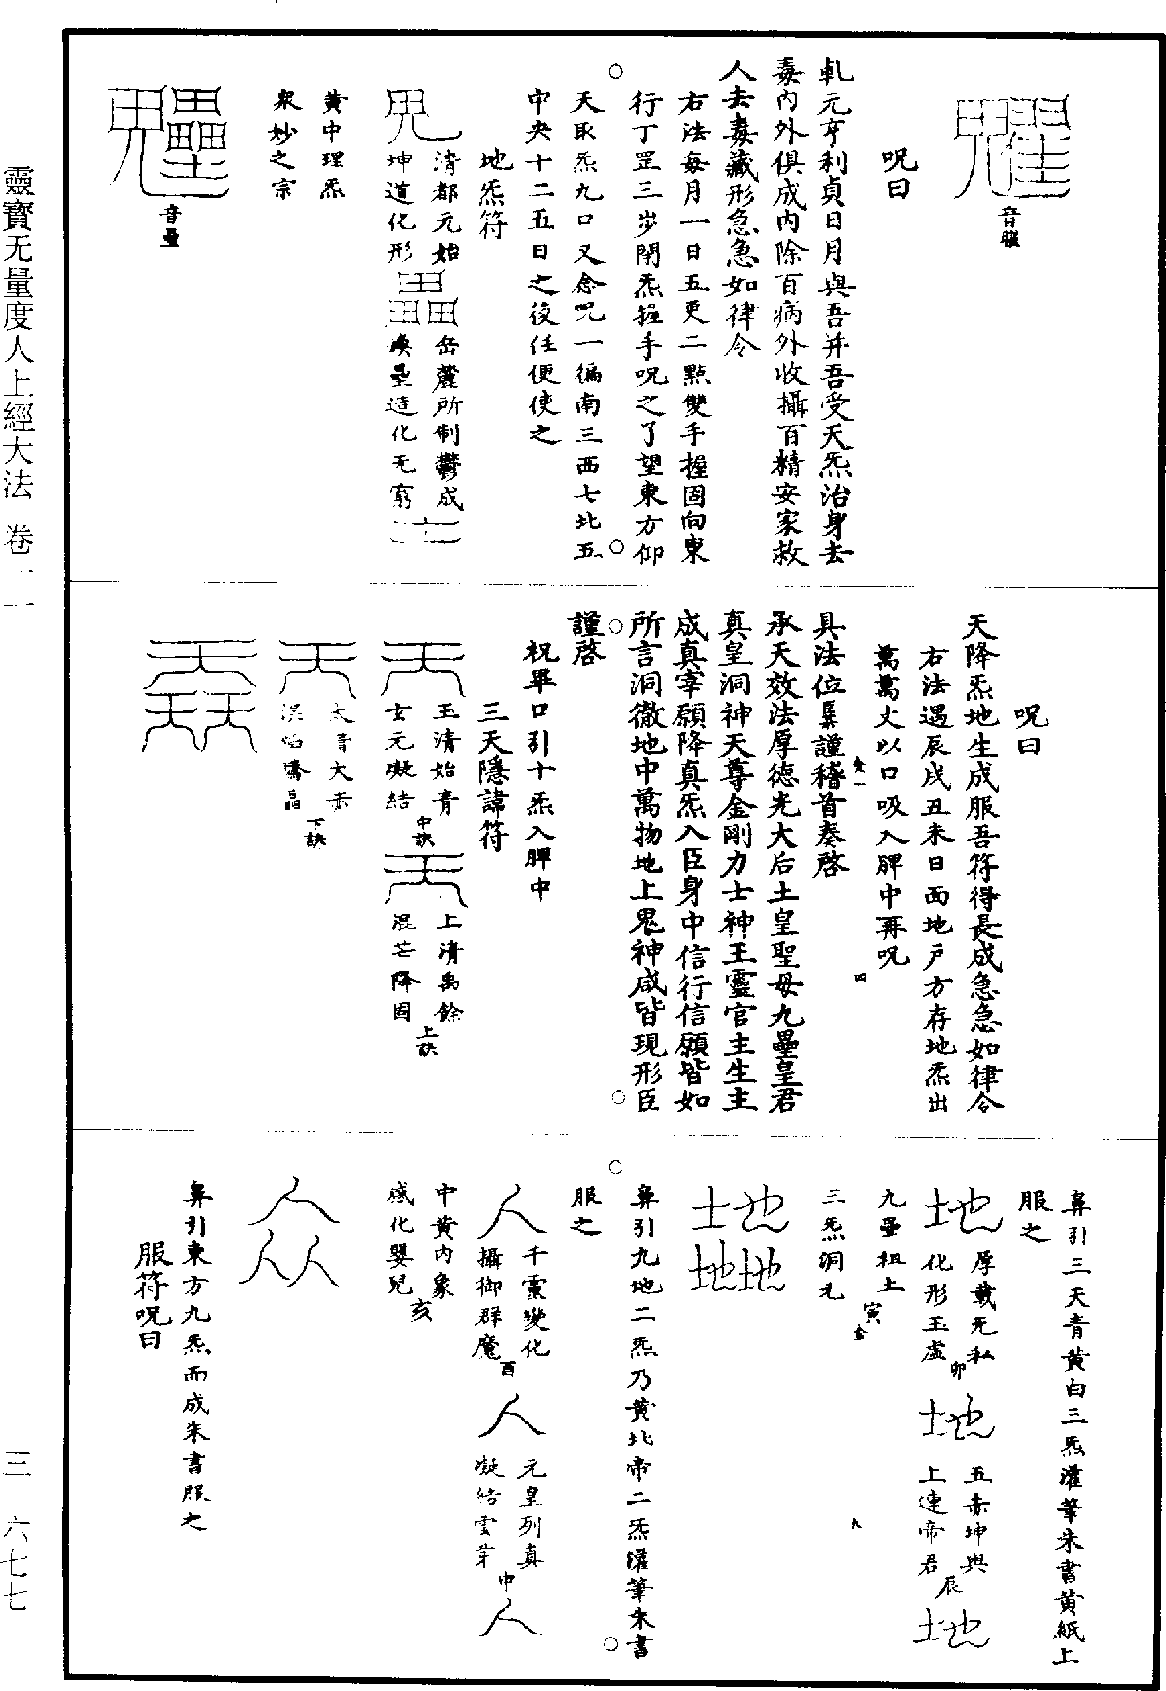 靈寶无量度人上經大法 卷二一
三 六七七
音䀠
呪曰
軋元亨利貞日月與吾并吾受天炁治身去
毒内外俱成内除百病外收攝百精安家救
人去毒藏形急急如律令
右法每月一日五更二點雙手握固向東
行丁罡三步閉炁握手呪之了望東方仰
天取炁九口又念呪一徧南三西七北五
中央十二五日之後任便使之
地炁符
清都元始
坤道化形
岳麓所制鬱成
造化无窮
黃中理炁
衆妙之宗
音壘
呪曰
天降炁地生成服吾符得長成急急如律令
右法遇辰戌丑未日面地戶方存地炁出
萬萬丈以口吸入脾中再呪
具法位某謹稽首奏啓
承天效法厚德光大后土皇聖母九壘皇君
真皇洞神天尊金剛力士神王靈官主生主
成真宰願降真炁入臣身中信行信願皆如
所言洞徹地中萬物地上鬼神咸皆現形臣
謹啓
祝畢口引十炁入脾中
三天隱諱符
天
玉清始青
玄元凝結
中訣
天
上清禹餘
混芒降固
上訣
天
太青大赤
下訣
鼻引三天青黃白三炁灌筆朱書黃紙上
服之
地
厚載无私
化形玉虛
卯
地
五赤坤與
上連帝君
辰
地
九壘祖土
三炁洞元
寅
鼻引九地二炁乃黃北帝二炁灌筆朱書
服之
人
千靈變化
攝御群魔
酉
人
元皇列真
凝結雲芽
中
人
中黃内象
感化嬰兒
亥
鼻引東方九炁而成朱書服之
服符呪曰